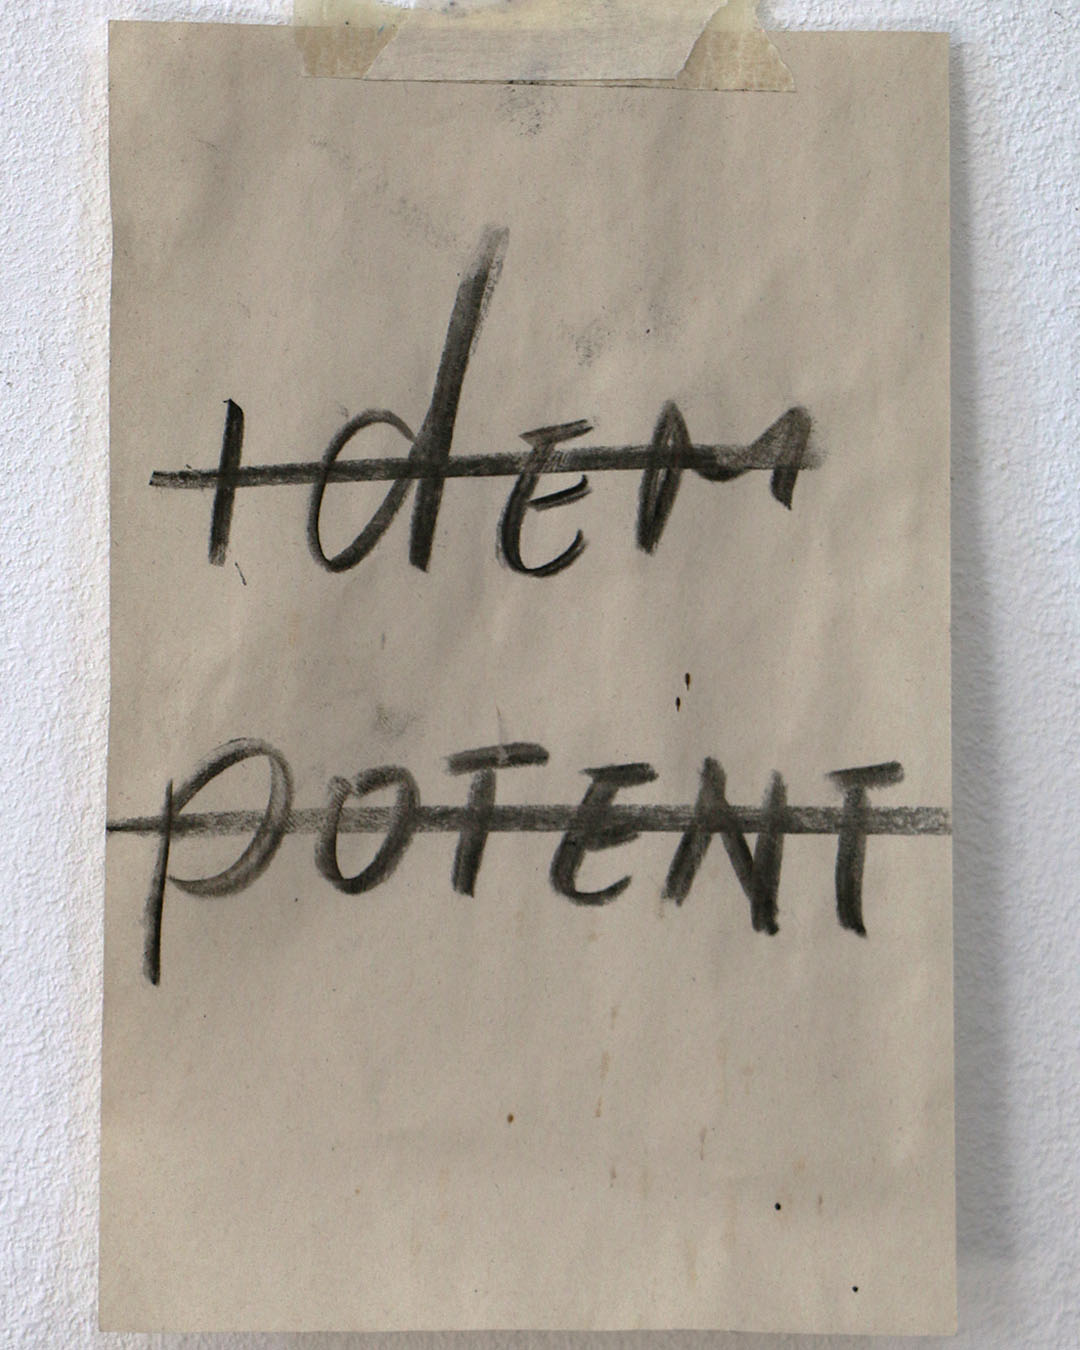 IdEM
POTENT